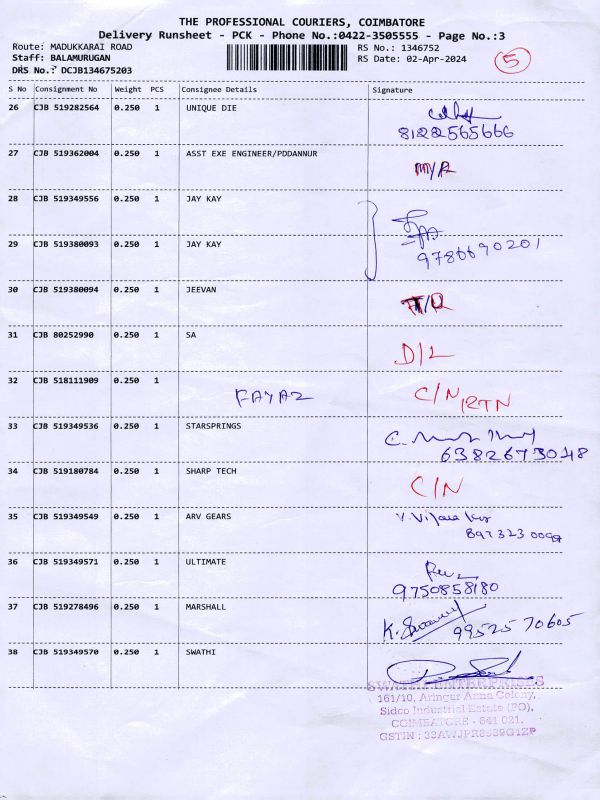 THE PROFESSIONAL COURIERS, COIMBATORE
Delivery Runsheet - PCK - Phone No.:0422-3505555 - Page No.:3
Route: MADUKKARAI ROAD RS No.: 1346752
Staff: BALAMURUGAN RS Date: 02-Apr-2024
DRS No.: DCJB134675203
5
S No Consignment No Weight PCS Consignee Details Signature
26 CJB 519282564 0.250 1 UNIQUE DIE
8122565666
27 CJB 519362004 0.250 1 ASST EXE ENGINEER/PDDANNUR
28 CJB 519349556 0.250 1 JAY KAY
29 CJB 519380093 0.250 1 JAY KAY
9786690201
30 CJB 519380094 0.250 1 JEEVAN
31 CJB 80252990 0.250 1 SA D/L
32 CJB 518111909 0.250 1 FAYAZ C/N RTN
33 CJB 519349536 0.250 1 STARSPRINGS
6382673048
34 CJB 519180784 0.250 1 SHARP TECH C/N
35 CJB 519349549 0.250 1 ARV GEARS
36 CJB 519349571 0.250 1 ULTIMATE
9750858180
37 CJB 519278496 0.250 1 MARSHALL 99525 70605
38 CJB 519349570 0.250 1 SWATHI
SWATHI ENTERPRISES
161/10, Aringar Anna Colony,
Sidco Industrial Estate (PO),
COIMBATORE - 641 021.
GSTIN :